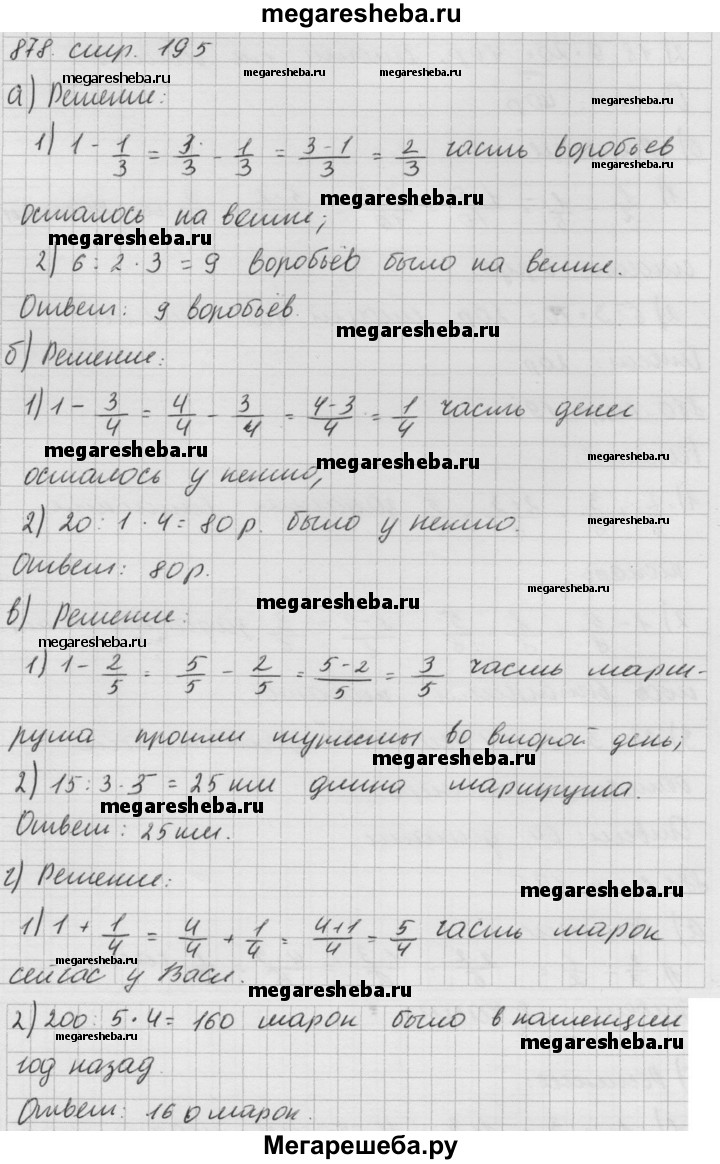 megaresheba.ru
878. стр. 195
megaresheba.ru megaresheba.ru megaresheba.ru
а) Решение:
megaresheba.ru
1) 1 - 1/3 = 3/3 - 1/3 = (3-1)/3 = 2/3 часть воробьев
megaresheba.ru
megaresheba.ru
осталось на ветке;
megaresheba.ru
2) 6 : 2 · 3 = 9 воробьёв было на ветке.
Ответ: 9 воробьёв.
megaresheba.ru
б) Решение:
1) 1 - 3/4 = 4/4 - 3/4 = (4-3)/4 = 1/4 часть денег
megaresheba.ru megaresheba.ru megaresheba.ru
осталось у
2) 20 : 1 · 4 = 80 р. было у
megaresheba.ru
Ответ: 80 р.
megaresheba.ru
megaresheba.ru
в) Решение:
megaresheba.ru
1) 1 - 2/5 = 5/5 - 2/5 = (5-2)/5 = 3/5 часть марш-
рута прошли туристы во второй день;
megaresheba.ru
2) 15 : 3 · 5 = 25 км длина маршрута.
megaresheba.ru
Ответ: 25 км.
г) Решение:
megaresheba.ru
1) 1 + 1/4 = 4/4 + 1/4 = (4+1)/4 = 5/4 часть марок
megaresheba.ru
сейчас у Васи.
megaresheba.ru
2) 200 : 5 · 4 = 160 марок было в коллекции
megaresheba.ru megaresheba.ru
год назад.
Ответ: 160 марок.
Мегарешеба.ру